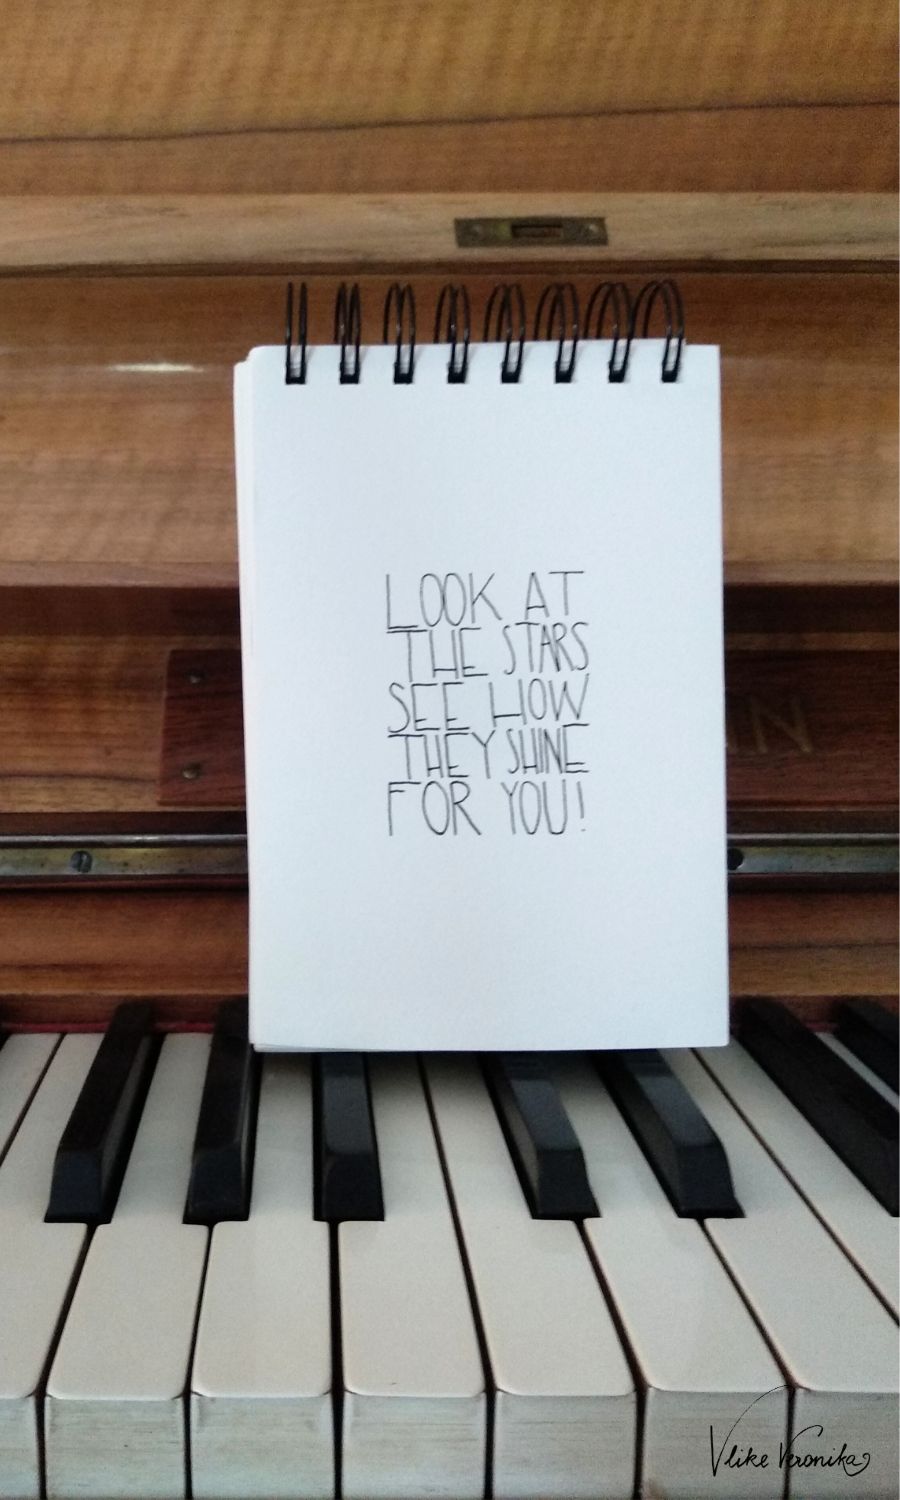 LOOK AT
THE STARS
SEE HOW
THEY SHINE
FOR YOU!
NN
V like Veronika